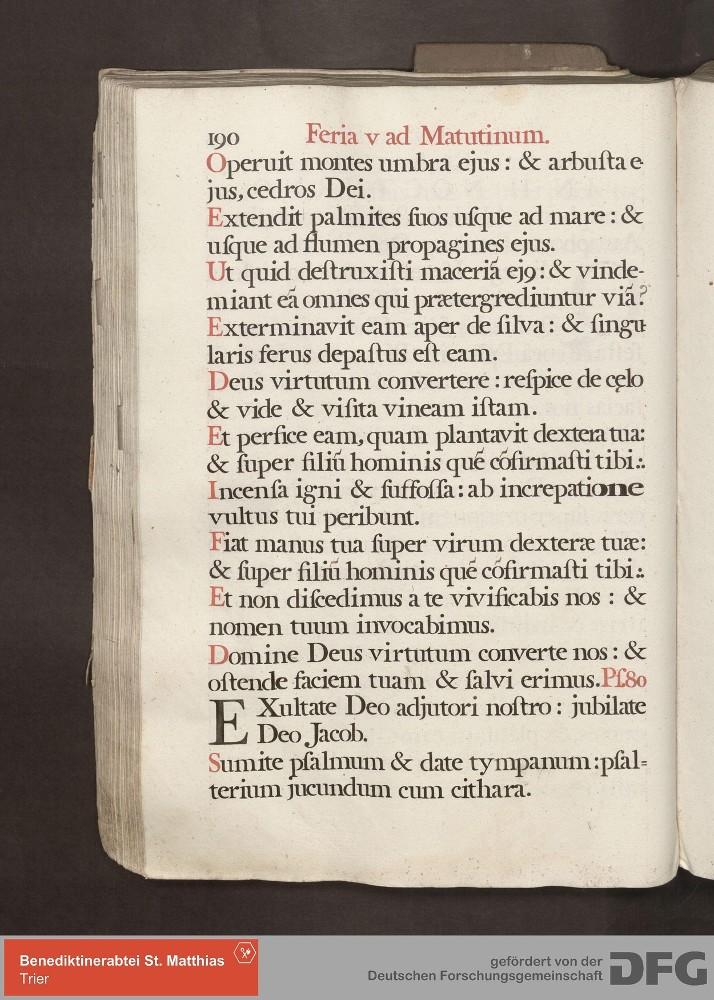 190 Feria v ad Matutinum.
Operuit montes umbra ejus : & arbuſta e-
jus, cedros Dei.
Extendit palmites ſuos uſque ad mare : &
uſque ad flumen propagines ejus.
Ut quid deſtruxiſti maceriã ej9 : & vinde-
miant eã omnes qui prætergrediuntur viã?
Exterminavit eam aper de ſilva : & ſingu-
laris ferus depaſtus eſt eam.
Deus virtutum convertere : reſpice de cęlo
& vide & viſita vineam iſtam.
Et perfice eam, quam plantavit dextera tua:
& ſuper filiũ hominis quẽ cõfirmaſti tibi:.
Incenſa igni & ſuffoſſa : ab increpatione
vultus tui peribunt.
Fiat manus tua ſuper virum dexteræ tuæ:
& ſuper filiũ hominis quẽ cõfirmaſti tibi:.
Et non diſcedimus a te vivificabis nos : &
nomen tuum invocabimus.
Domine Deus virtutum converte nos : &
oſtende faciem tuam & ſalvi erimus. Pſ.80
EXultate Deo adjutori noſtro : jubilate
Deo Jacob.
Sumite pſalmum & date tympanum : pſal=
terium jucundum cum cithara.
Benediktinerabtei St. Matthias
Trier
gefördert von der
Deutschen Forschungsgemeinschaft DFG